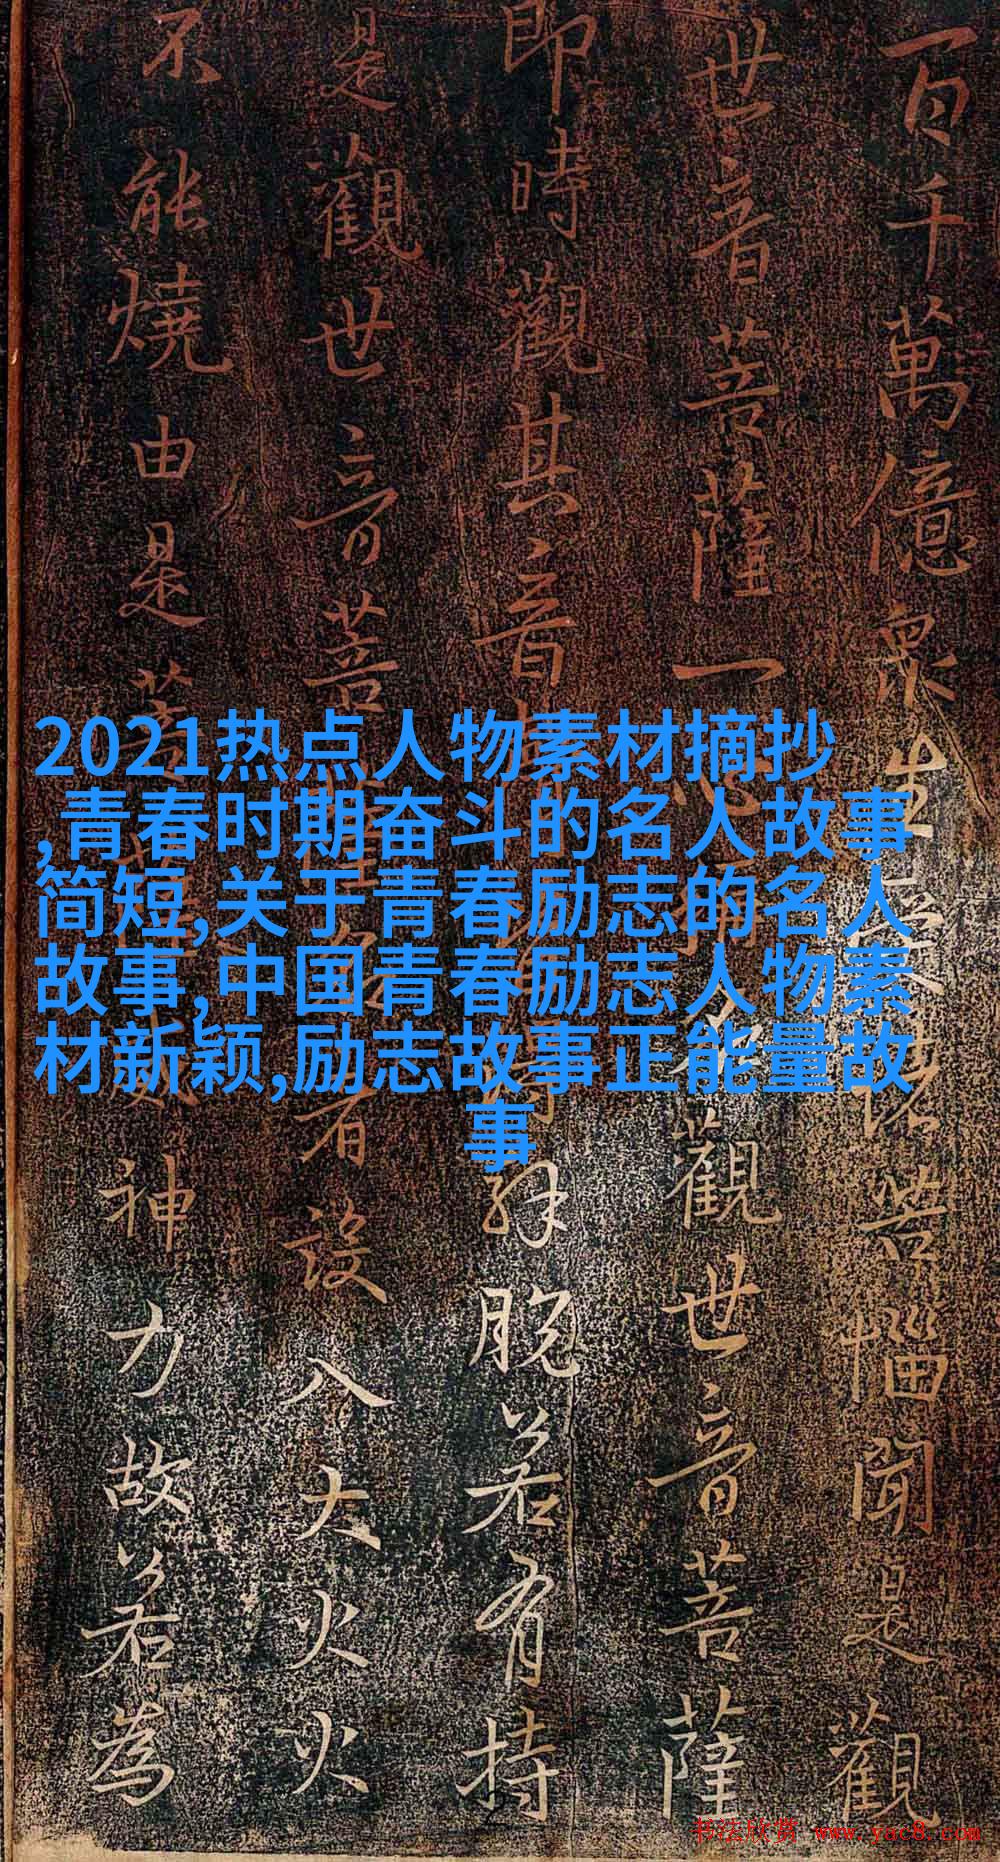 2021热点人物素材摘抄
,青春时期奋斗的名人故事
简短,关于青春励志的名人
故事,中国青春励志人物素
材新颖,励志故事正能量故
事
百千萬億眾生諸苦惱聞是觀
世音菩薩一心名觀世音菩薩
即時觀其音解脫若有持
是觀世音菩者設入大火火
不能燒由是菩神力故若為
书法欣赏 www.yac8.com